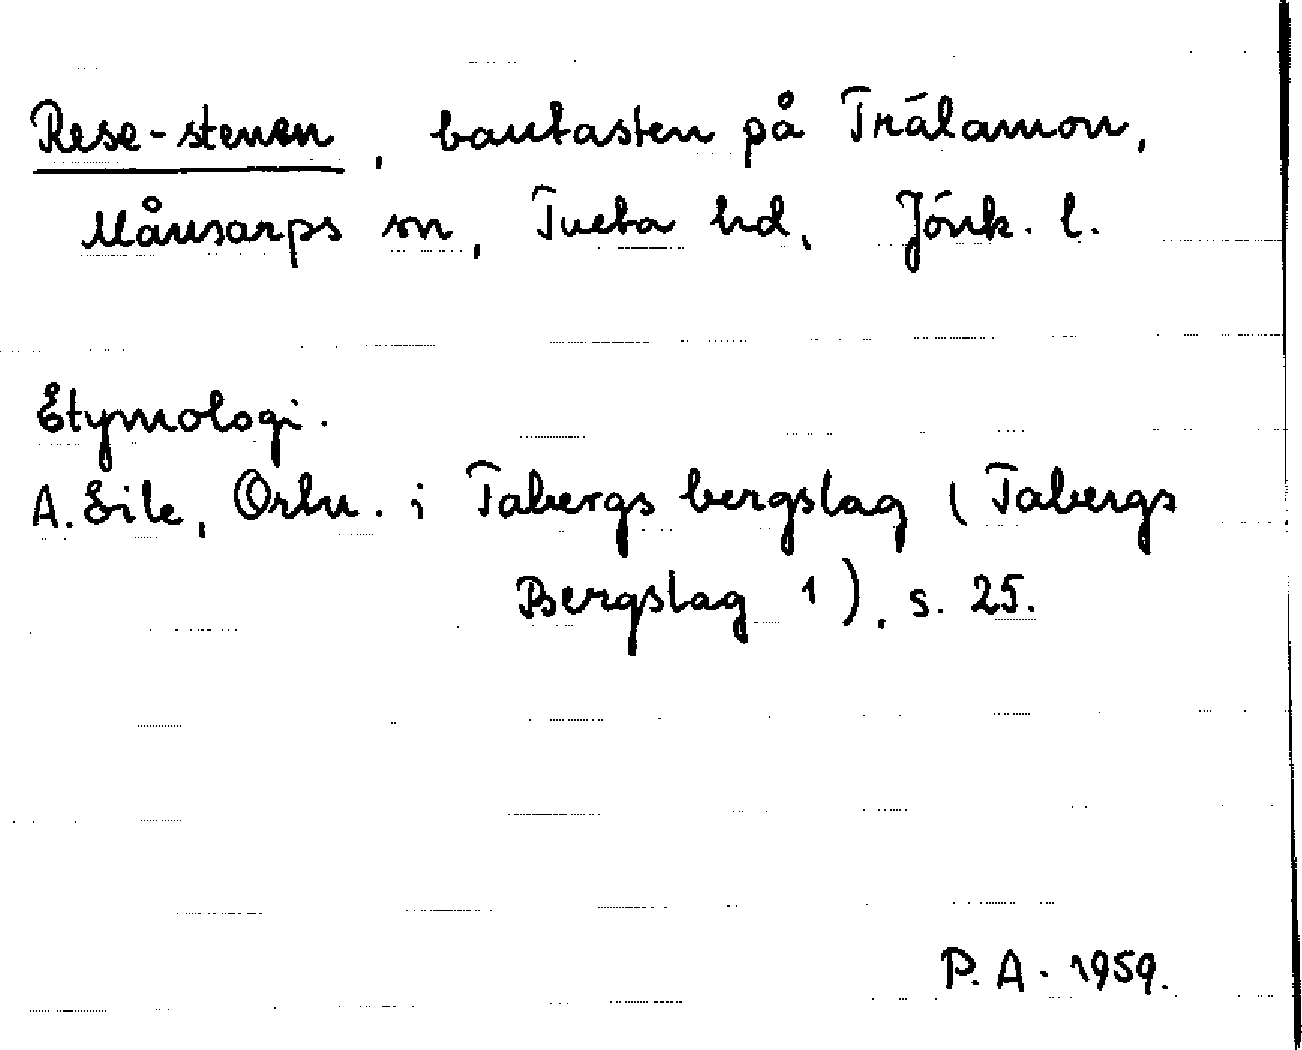 Rese-stenen, bautasten på Trälamon,
Månsarps sn, Tveta hd, Jönk. l.
Etymologi.
A. Ejle, Ortn. i Tabergs bergslag (Tabergs
Bergslag 1). s. 25.
P. A. 1959.